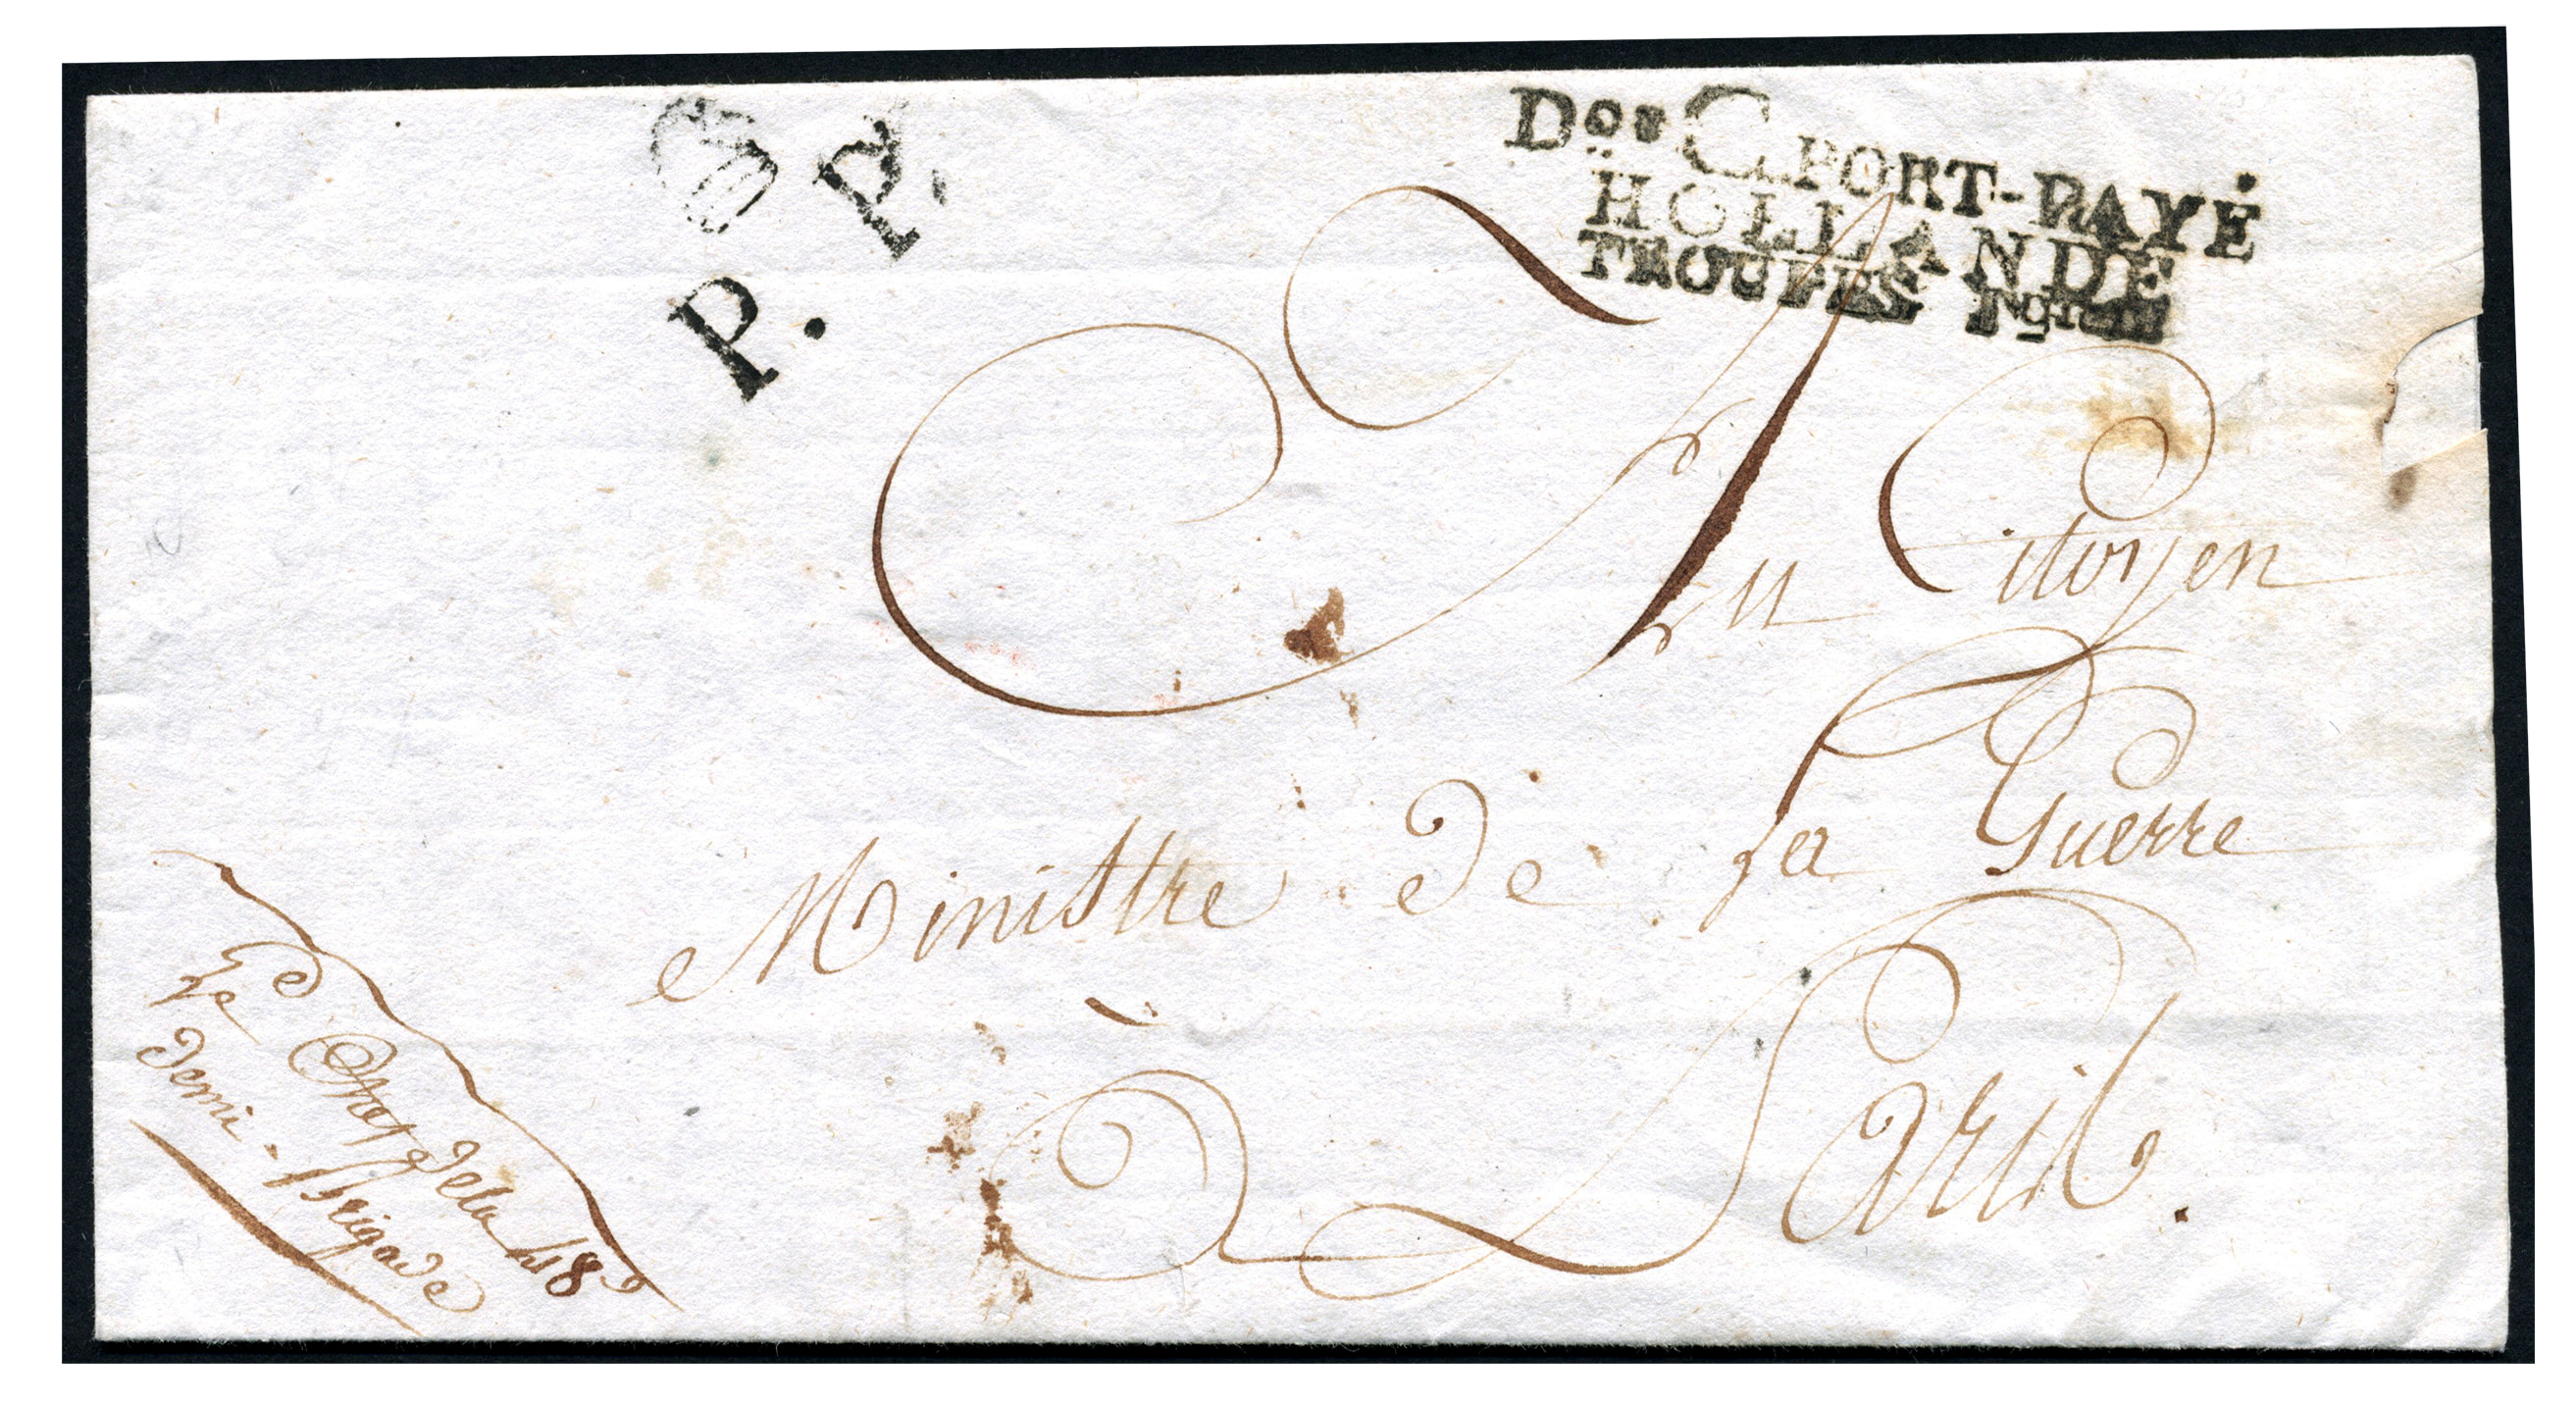 P. P.
Don C PORT-PAYÉ
HOLLANDE
TROUPES
Au Citoyen
Ministre de la Guerre
à Paris.
Le Chef de la 48e
demi-Brigade